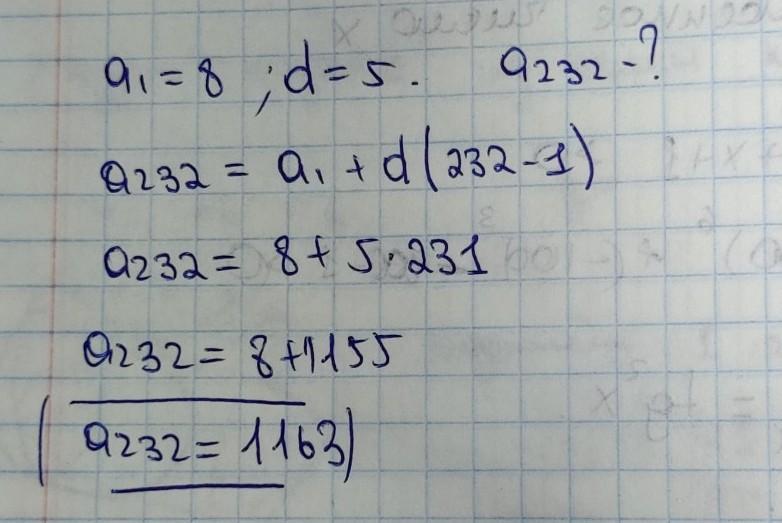 a₁ = 8 ; d = 5. a₂₃₂ - ?
a₂₃₂ = a₁ + d(232-1)
a₂₃₂ = 8 + 5·231
a₂₃₂ = 8+1155
(a₂₃₂ = 1163)